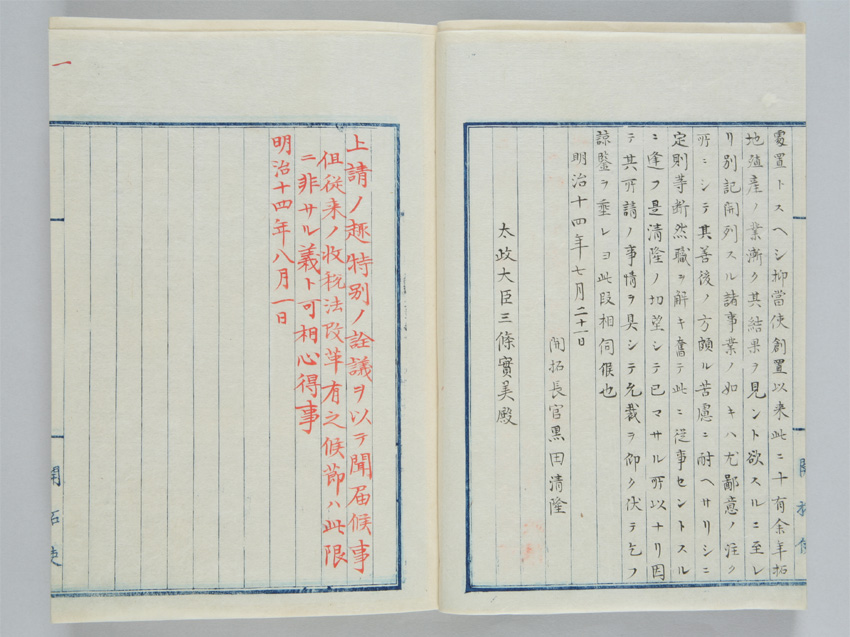 處置トスヘシ抑當使創置以来此ニ十有余年拓
地殖産ノ業漸ク其結果ヲ見ント欲スルニ至レ
リ別記開列スル諸事業ノ如キハ尤鄙意ノ注ク
所ニシテ其善後ノ方頗ル苦慮ニ耐ヘサリシニ
定則等断然職ヲ解キ奮テ此ニ従事セントスル
ニ逢フ是清隆ノ切望シテ已マサル所以ナリ因
テ其所請ノ事情ヲ具シテ允裁ヲ仰ク伏テ乞フ
諒鑒ヲ垂レヨ此段相伺候也
明治十四年七月二十一日
開拓長官黒田清隆
太政大臣三條實美殿
開拓使
上請ノ趣特別ノ詮議ヲ以テ聞届候事
但従来ノ收税法改革有之候節ハ此限
ニ非サル義ト可相心得事
明治十四年八月一日
一
開拓使